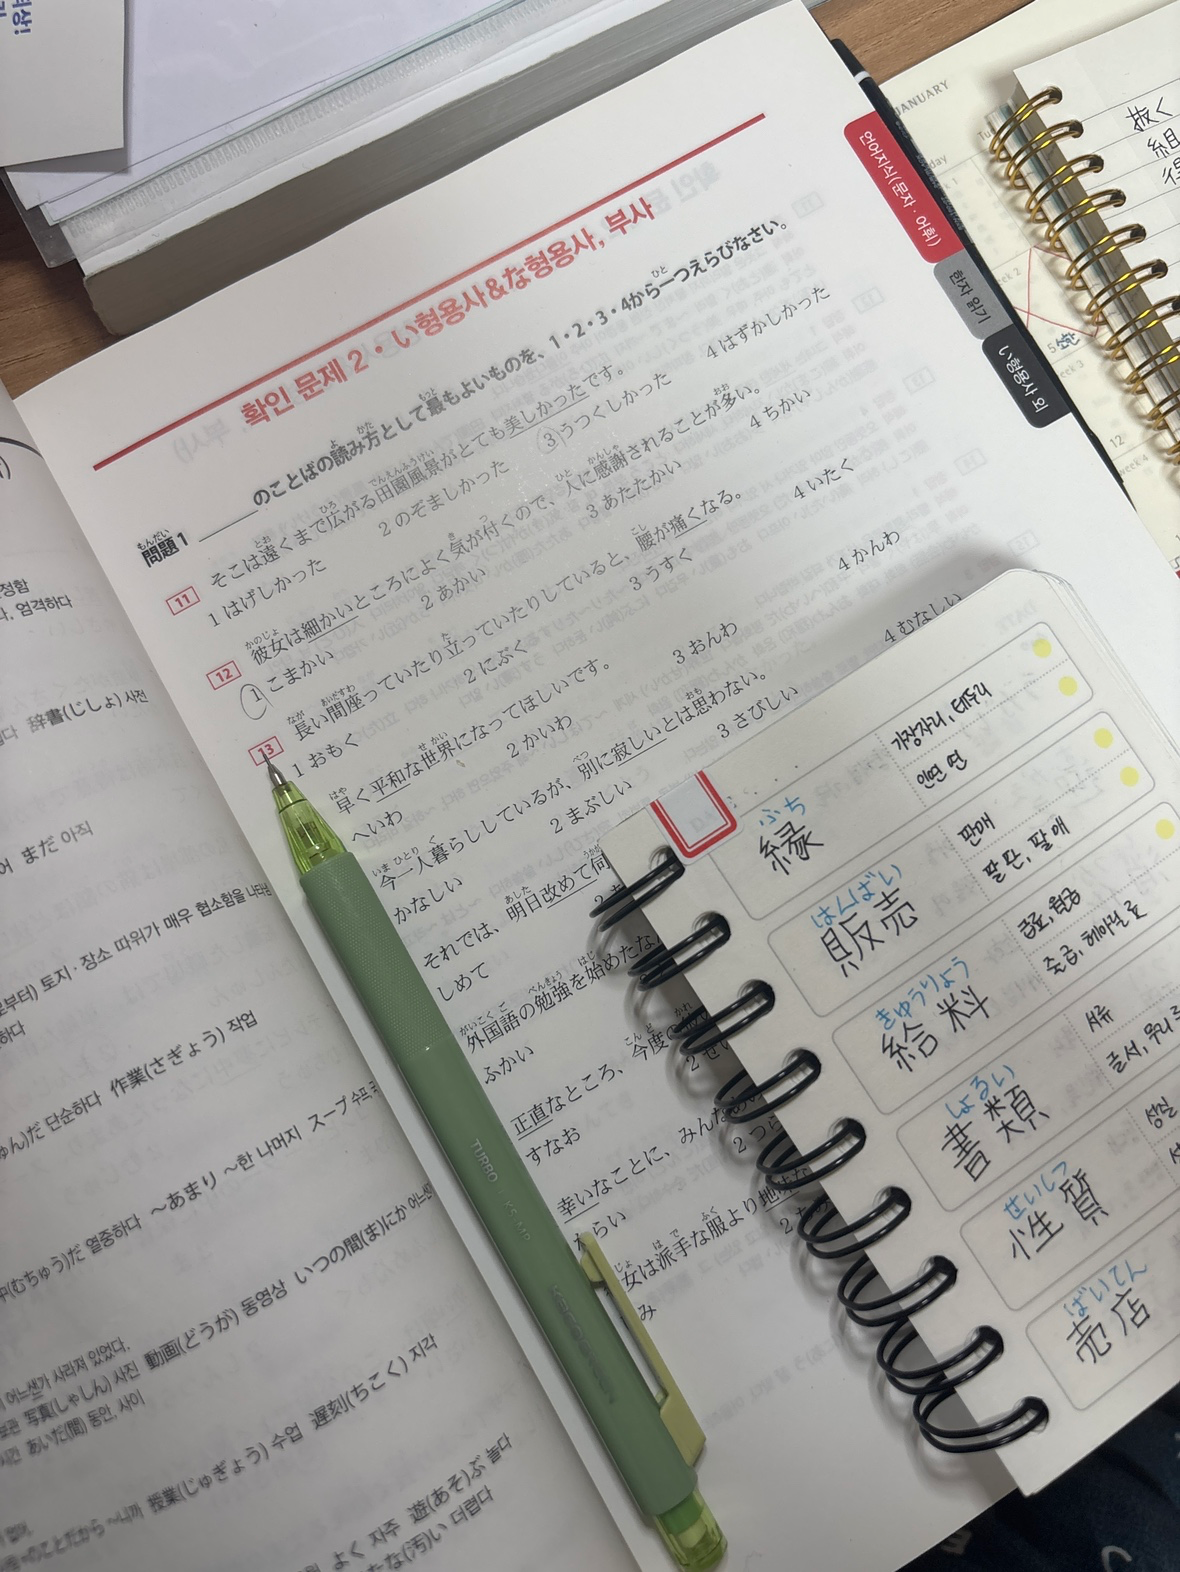 확인 문제 2 · い형용사&な형용사, 부사
問題1 ______のことばの読み方として最もよいものを、1・2・3・4から一つえらびなさい。
11 そこは遠くまで広がる田園風景がとても美しかったです。
1 はげしかった 2 のぞましかった 3 うつくしかった 4 はずかしかった
12 彼女は細かいところによく気が付くので、人に感謝されることが多い。
1 こまかい 2 あかい 3 あたたかい 4 ちかい
13 長い間座っていたり立っていたりしていると、腰が痛くなる。
1 おもく 2 にぶく 3 うすく 4 いたく
早く平和な世界になってほしいです。
へいわ 2 かいわ 3 おんわ 4 かんわ
今一人暮らししているが、別に寂しいとは思わない。
かなしい 2 まぶしい 3 さびしい 4 むなしい
それでは、明日改めて伺
しめて
外国語の勉強を始めたな
ふかい
正直なところ、今度の
すなお
幸いなことに、みんな
からい 2 つら
女は派手な服より地味な
み
언어지식(문자・어휘)
한자 읽기
い형용사 외
JANUARY
抜く
組
縁 ふち
가장자리, 테두리
인연 연
販売 はんばい
판매
팔 판, 팔 매
給料 きゅうりょう
급료, 월급
줄 급, 헤아릴 료
書類 しょるい
서류
글 서, 무리 류
性質 せいしつ
성질
売店 ばいてん
辞書(じしょ) 사전
어 まだ 아직
토지·장소 따위가 매우 협소함을 나타냄
단순하다 作業(さぎょう) 작업
中(むちゅう)だ 열중하다 ～あまり ～한 나머지 スープ 수프
写真(しゃしん) 사진 動画(どうが) 동영상 いつの間(ま)にか 어느샌
あいだ(間) 동안, 사이
ことだから ～니까 授業(じゅぎょう) 수업 遅刻(ちこく) 지각
よく 자주 遊(あそ)ぶ 놀다
たな(汚)い 더럽다
TURBO